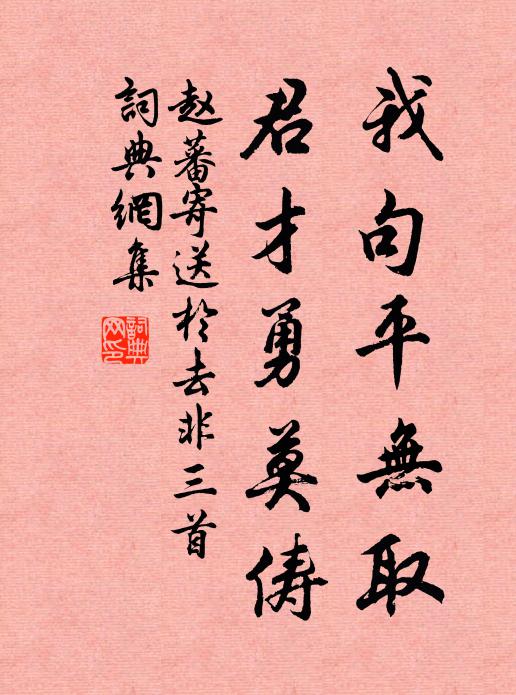 我句平無取
君才勇莫俦
赵蕃寄送於去非三首
詞典網集
詞典网印